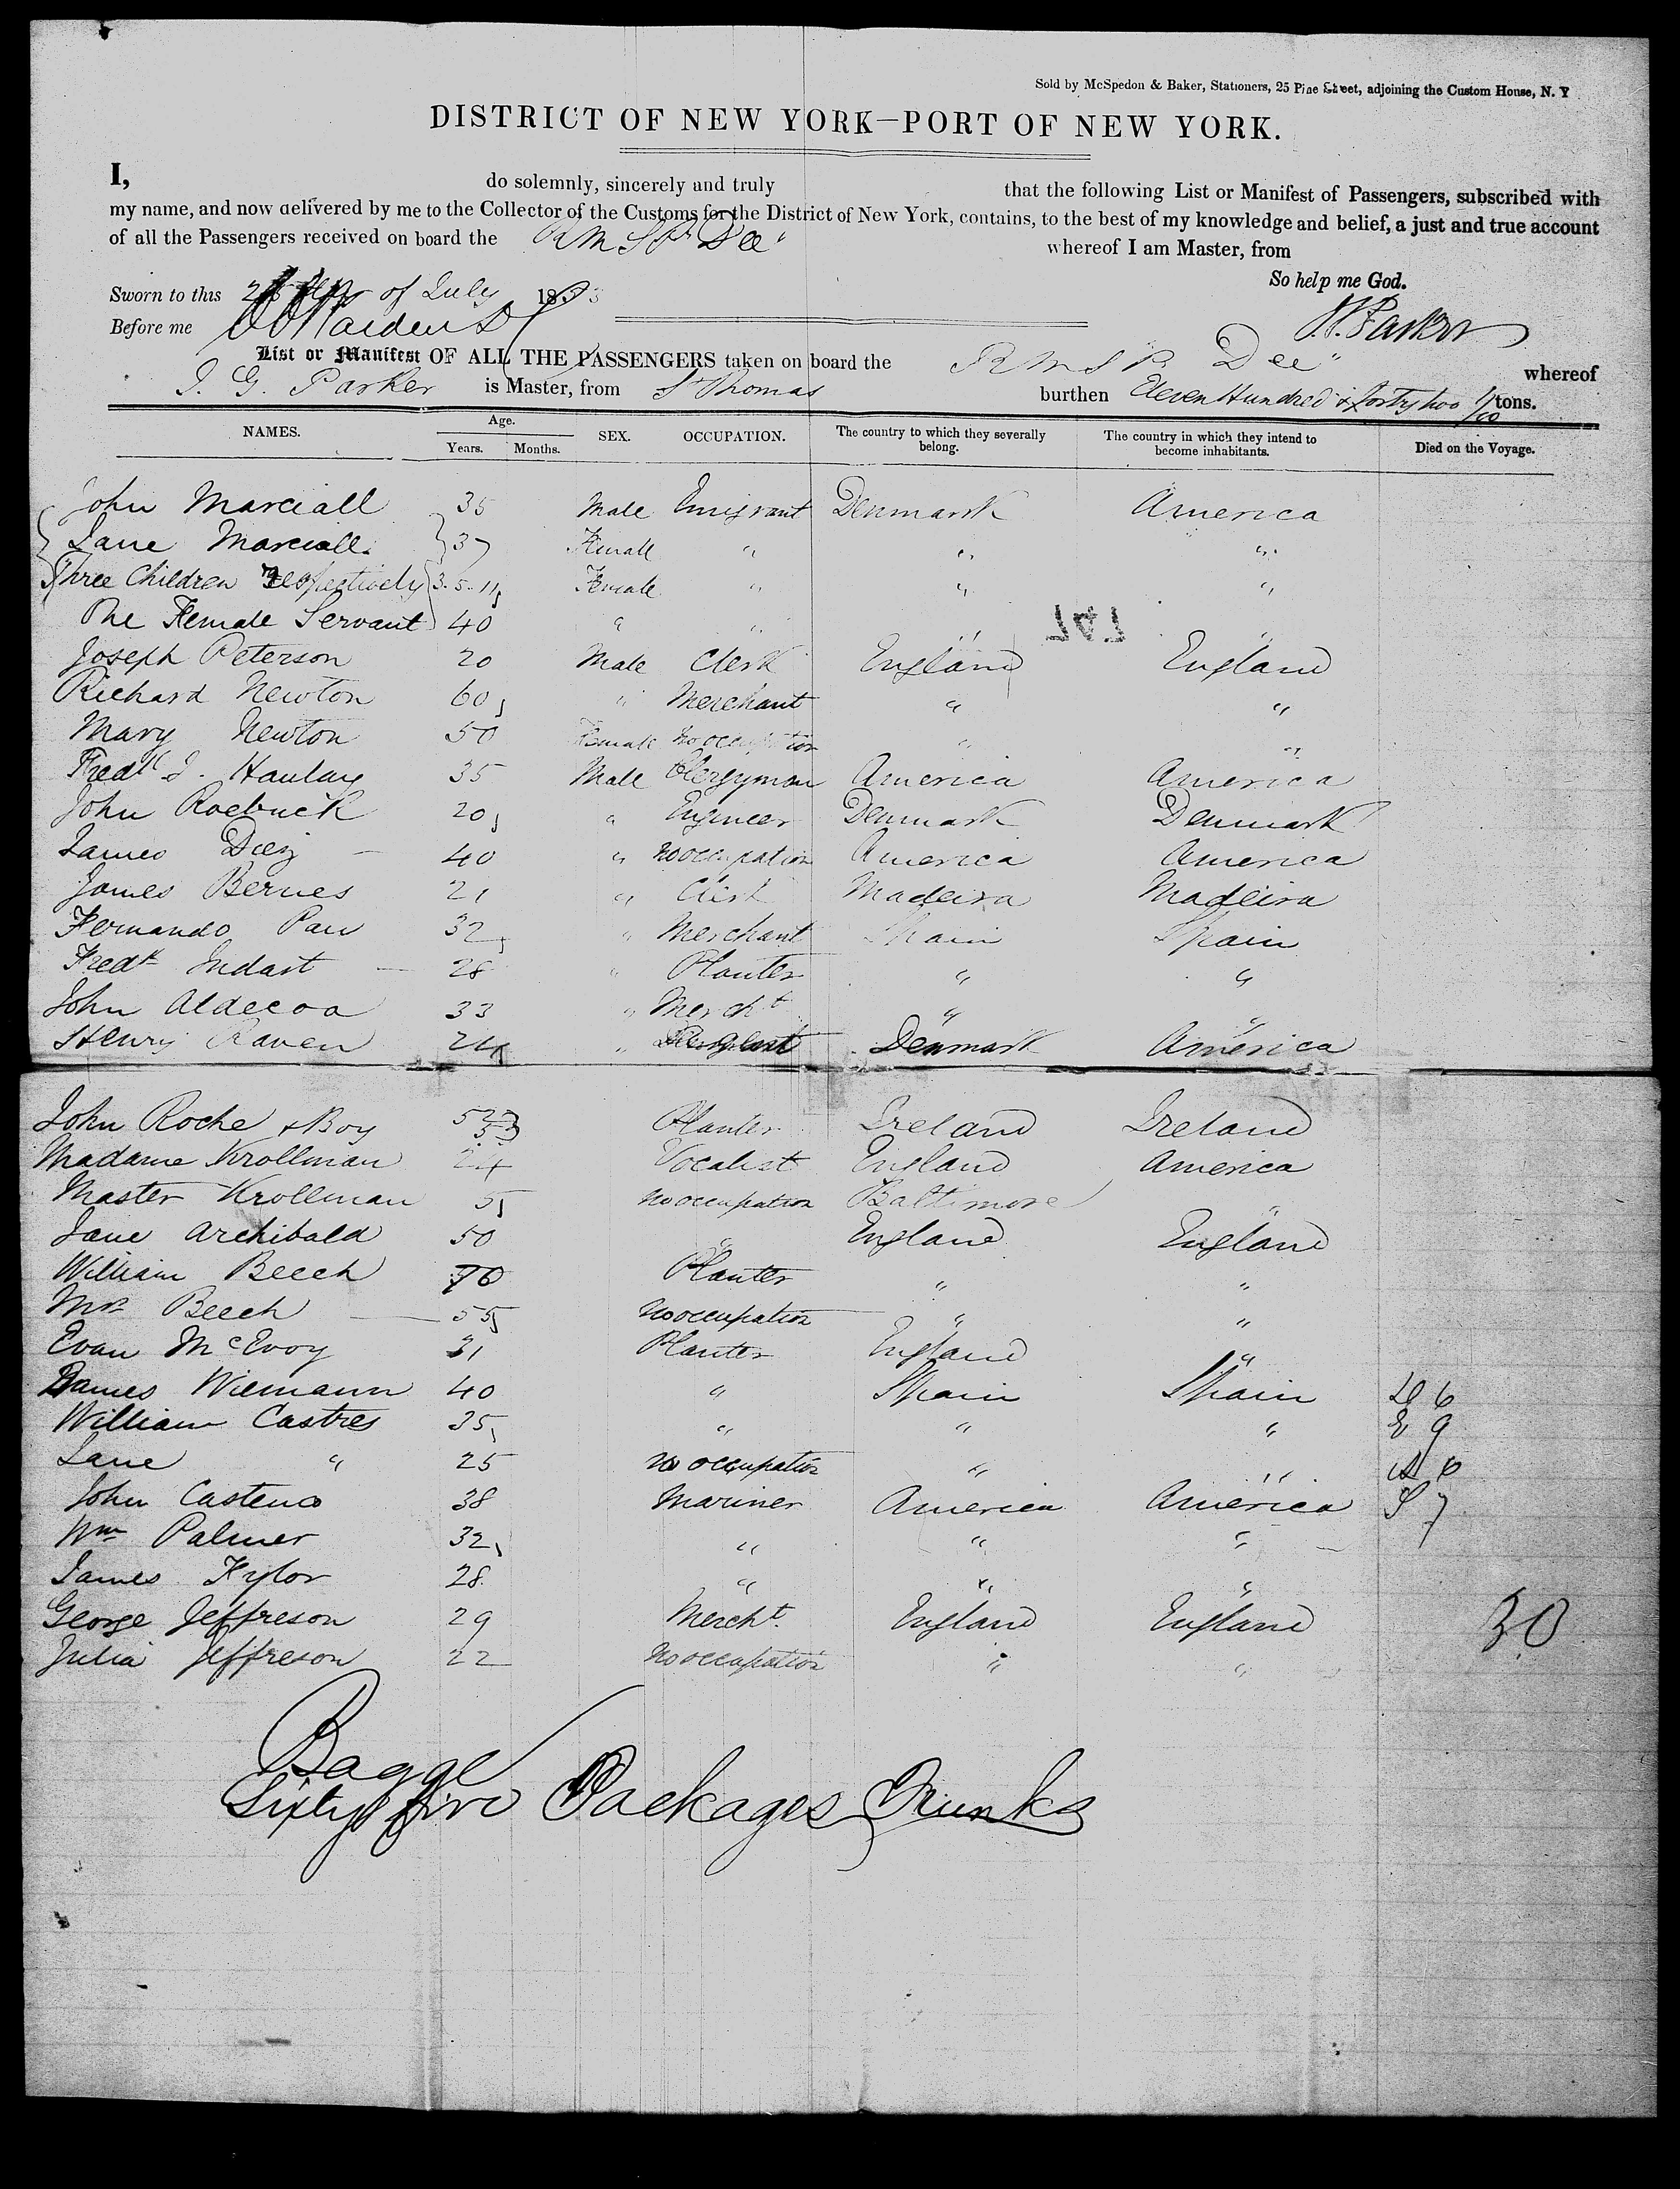 Sold by McSpedon & Baker, Stationers, 25 Pine Street, adjoining the Custom House, N. Y
DISTRICT OF NEW YORK—PORT OF NEW YORK.
I, do solemnly, sincerely and truly that the following List or Manifest of Passengers, subscribed with
my name, and now delivered by me to the Collector of the Customs for the District of New York, contains, to the best of my knowledge and belief, a just and true account
of all the Passengers received on board the R M S P Dee whereof I am Master, from
So help me God.
Sworn to this of July 1853
Before me
Parker
List or Manifest OF ALL THE PASSENGERS taken on board the R M S P Dee" whereof
J. G. Parker is Master, from St Thomas burthen Eleven Hundred & forty two tons.
NAMES. Age. Years. Months. SEX. OCCUPATION. The country to which they severally belong. The country in which they intend to become inhabitants. Died on the Voyage.
John Marciall 35 Male Emigrant Denmark America
Jane Marciall 37 Female " " "
Three Children Respectively 3. 5. 11 Female " " "
One Female Servant 40 " " " "
Joseph Peterson 20 Male Clerk England England
Richard Newton 60 " Merchant " "
Mary Newton 50 Female no occupation " "
Fredk J. 35 Male Clergyman America America
John Roebuck 20 " Engineer Denmark Denmark
James Diez 40 " no occupation America America
James Bernes 21 " Clerk Madeira Madeira
Fernando Pau 32 " Merchant Spain Spain
Fredk Indart 28 " Planter " "
John Aldecoa 33 " Mercht " "
Henry Raven 24 " Denmark America
John Roche & Boy 53 Planter Ireland Ireland
Madame Krollman 24 Vocalist England America
Master Krollman 5 no occupation Baltimore "
Jane Archibald 50 " England England
William Beech 70 Planter " "
Mrs Beech 55 no occupation " "
Evan McEvoy 31 Planter England "
James Wiemann 40 " Spain Spain
William Castres 35 " " "
Jane " 25 no occupation " "
John Casteno 38 Mariner America America
Wm Palmer 32 " " "
James Kylor 28 " " "
George Jeffreson 29 Mercht. England England 30
Julia Jeffreson 22 no occupation " "
Bagge
Sixty five Packages Trunks